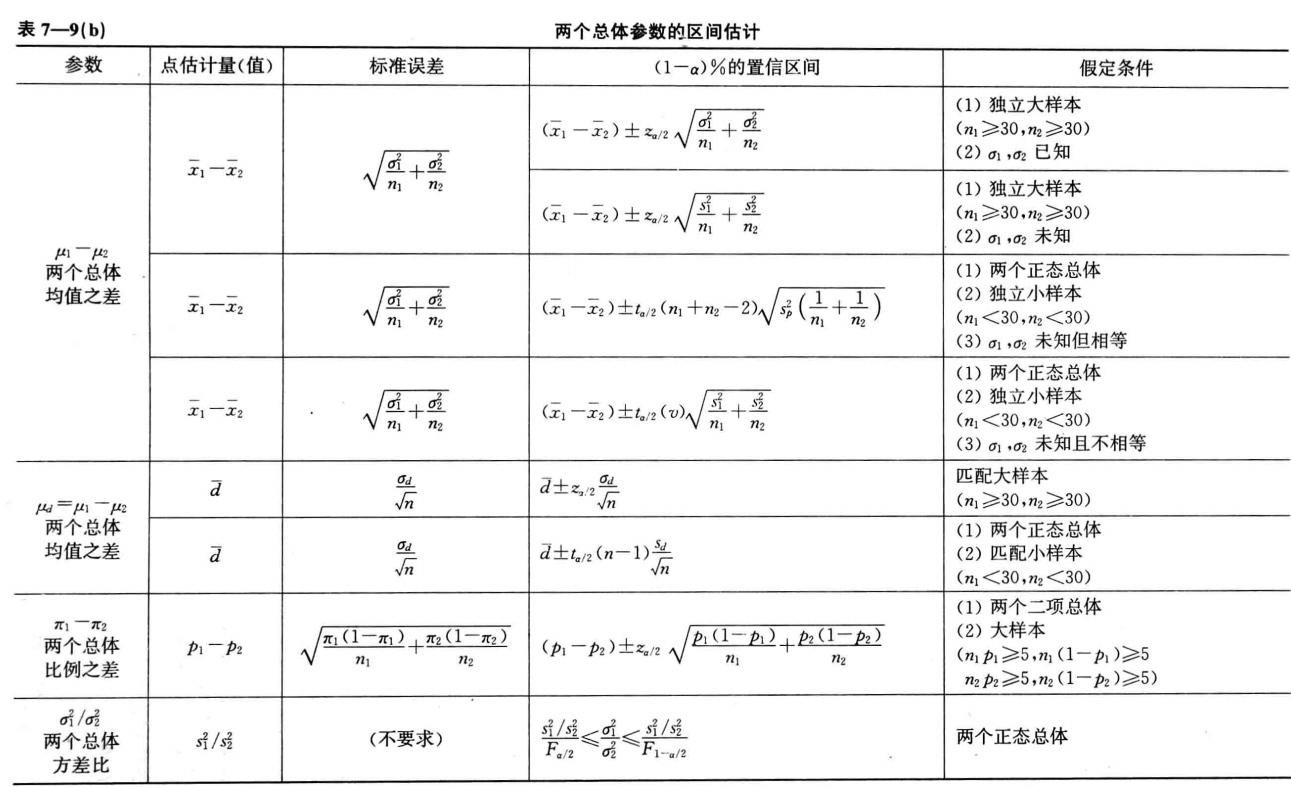 表 7—9(b) 两个总体参数的区间估计
参数 点估计量(值) 标准误差 (1－α)%的置信区间 假定条件
μ₁－μ₂
两个总体
均值之差
x̄₁－x̄₂
√(σ₁²/n₁＋σ₂²/n₂)
(x̄₁－x̄₂)±z_{α/2}√(σ₁²/n₁＋σ₂²/n₂)
(1) 独立大样本
(n₁≥30,n₂≥30)
(2) σ₁,σ₂ 已知
(x̄₁－x̄₂)±z_{α/2}√(s₁²/n₁＋s₂²/n₂)
(1) 独立大样本
(n₁≥30,n₂≥30)
(2) σ₁,σ₂ 未知
x̄₁－x̄₂
√(σ₁²/n₁＋σ₂²/n₂)
(x̄₁－x̄₂)±t_{α/2}(n₁＋n₂－2)√(s_p²(1/n₁＋1/n₂))
(1) 两个正态总体
(2) 独立小样本
(n₁<30,n₂<30)
(3) σ₁,σ₂ 未知但相等
x̄₁－x̄₂
√(σ₁²/n₁＋σ₂²/n₂)
(x̄₁－x̄₂)±t_{α/2}(v)√(s₁²/n₁＋s₂²/n₂)
(1) 两个正态总体
(2) 独立小样本
(n₁<30,n₂<30)
(3) σ₁,σ₂ 未知且不相等
μ_d＝μ₁－μ₂
两个总体
均值之差
d̄
σ_d/√n
d̄±z_{α/2}σ_d/√n
匹配大样本
(n₁≥30,n₂≥30)
d̄
σ_d/√n
d̄±t_{α/2}(n－1)s_d/√n
(1) 两个正态总体
(2) 匹配小样本
(n₁<30,n₂<30)
π₁－π₂
两个总体
比例之差
p₁－p₂
√(π₁(1－π₁)/n₁＋π₂(1－π₂)/n₂)
(p₁－p₂)±z_{α/2}√(p₁(1－p₁)/n₁＋p₂(1－p₂)/n₂)
(1) 两个二项总体
(2) 大样本
(n₁p₁≥5,n₁(1－p₁)≥5
n₂p₂≥5,n₂(1－p₂)≥5)
σ₁²/σ₂²
两个总体
方差比
s₁²/s₂²
(不要求)
(s₁²/s₂²)/F_{α/2}≤σ₁²/σ₂²≤(s₁²/s₂²)/F_{1－α/2}
两个正态总体